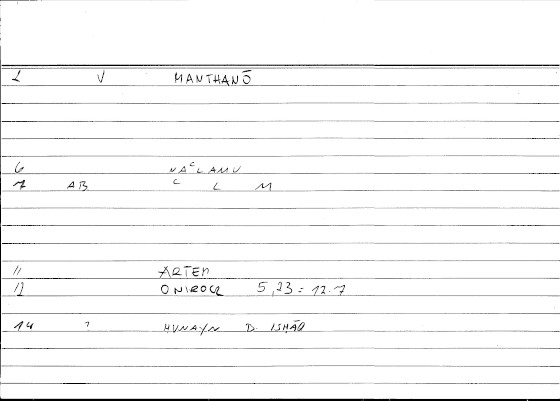 1 V MANTHANŌ
6 NAʿLAMU
7 AB ʿ L M
11 ARTEM
12 ONIROCR 5,23 = 12.7
14 ? ḤUNAYN B. ISḤĀQ